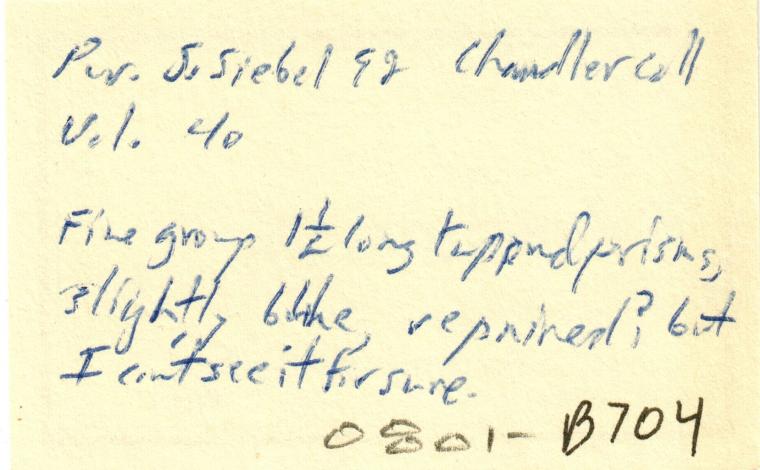 Pur. S. Siebel 92 Chandler coll
Val. 40
Fine group 1½ long tapped prisms,
slightly repaired? but
I cant see it for sure.
0801- B704